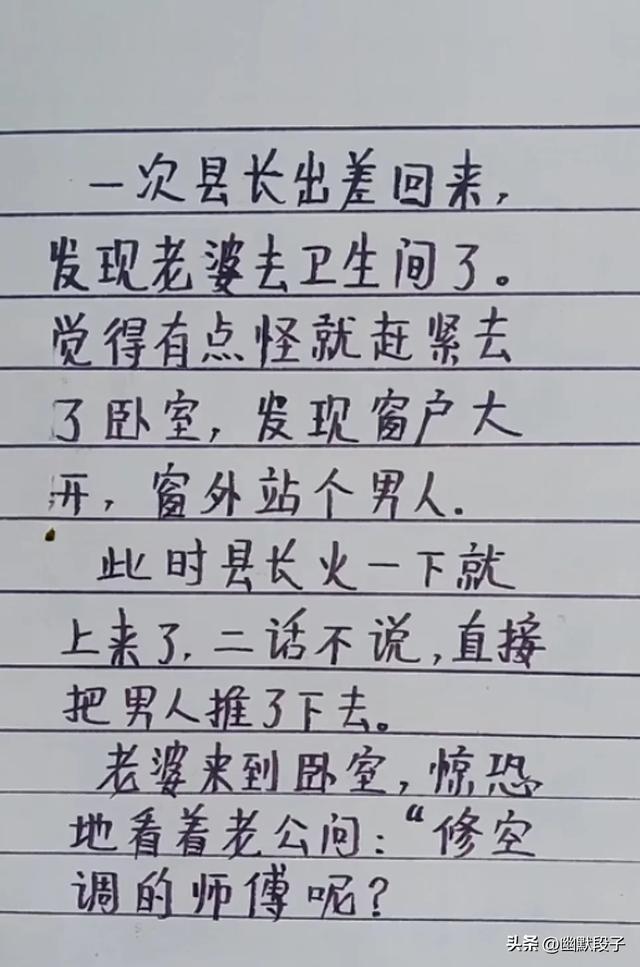 一次县长出差回来,
发现老婆去卫生间了。
觉得有点怪就赶紧去
了卧室,发现窗户大
开,窗外站个男人.
此时县长火一下就
上来了,二话不说,直接
把男人推了下去。
老婆来到卧室,惊恐
地看着老公问:“修空
调的师傅呢?
头条 @幽默段子